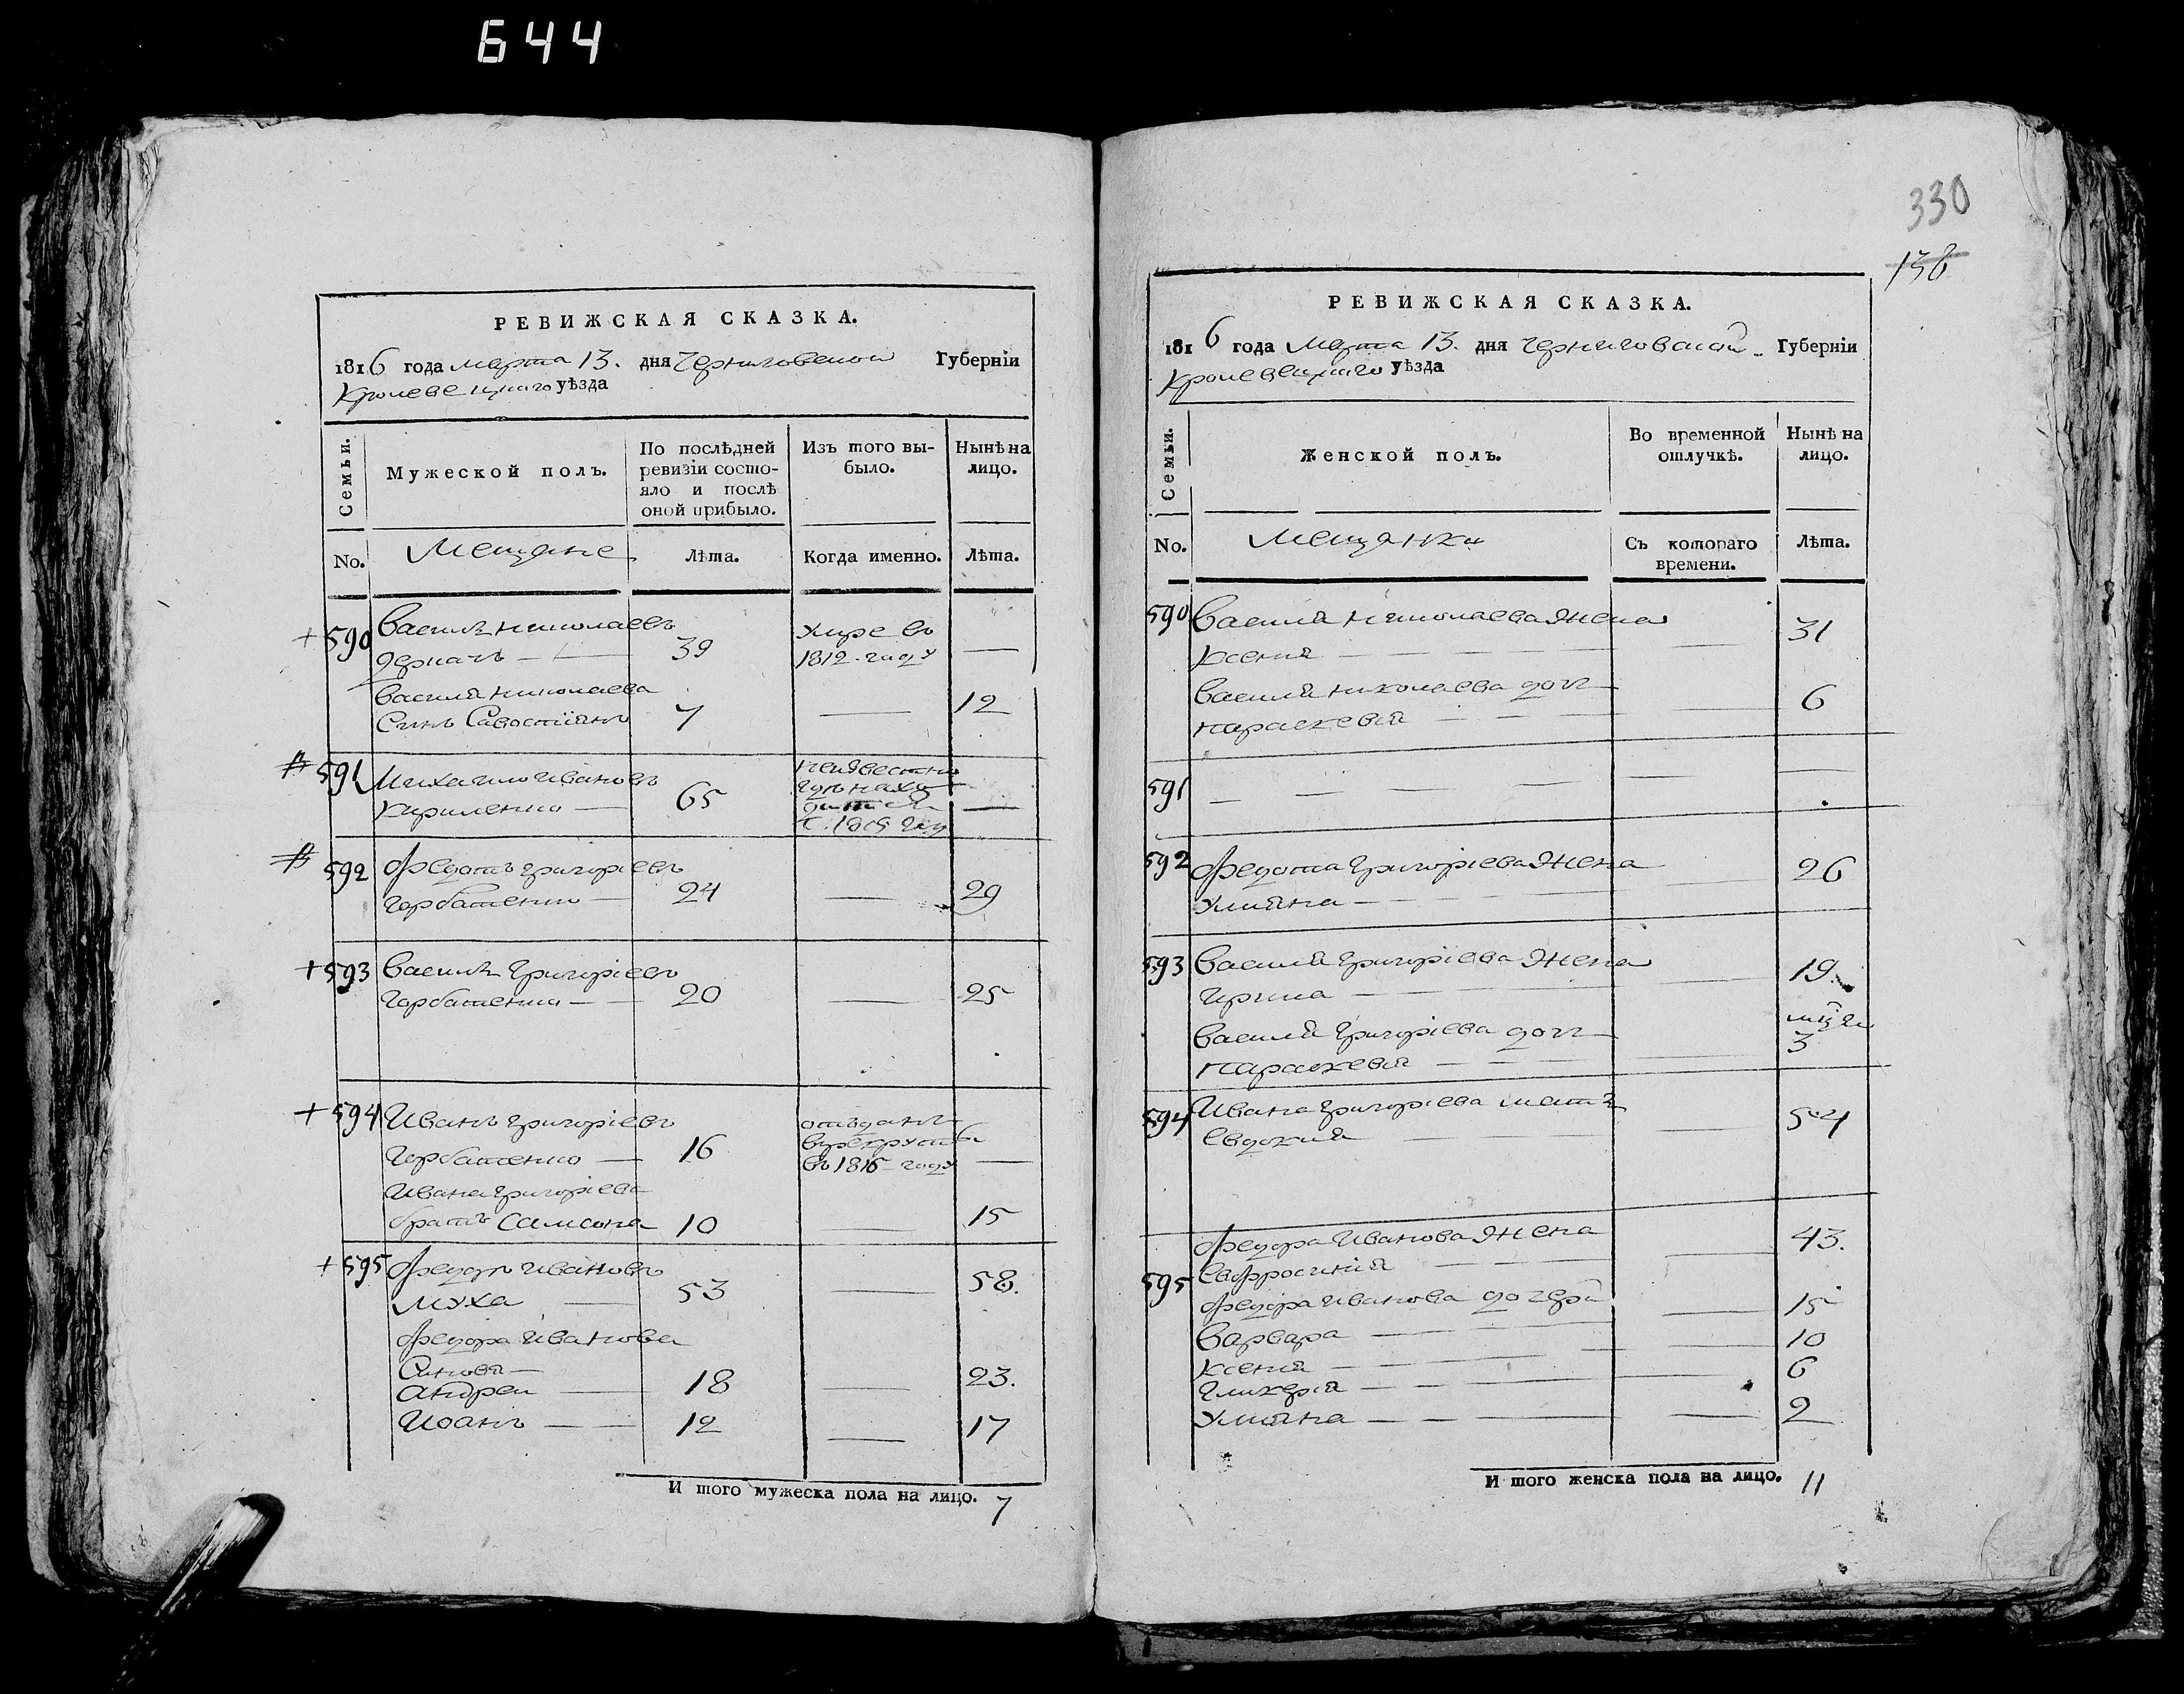 644
РЕВИЖСКАЯ СКАЗКА.
1816 года марта 13. дня Черниговской Губерніи
Кролевецкаго уѣзда
Семьи.
Мужеской полъ.
По послѣдней ревизіи состо-
яло и послѣ
оной прибыло.
Изъ того вы-
было.
Нынѣ на
лицо.
No. Мещане Лѣта. Когда именно. Лѣта.
+ 590 Василь николаевъ умре въ
Деркачъ 39 1812 году
Василія николаева
Сынъ Савостіянъ 7 12
591 Михайло ивановъ неизвестно
Кириленко 65 где нахо
дится
592 Федотъ григоріевъ
Горбатенко 24 29
+ 593 Василь григоріевъ
Горбатенко 20 25
+ 594 Иванъ григоріевъ отъданъ
Горбатенко 16 в рекруты
въ 1815 году
Ивана григоріева
братъ Самсонъ 10 15
+ 595 Федоръ ивановъ
Муха 53 58.
Федора иванова
Синовя
андреи 18 23.
Иоанъ 12 17
И того мужеска пола на лицо. 7
330
136
РЕВИЖСКАЯ СКАЗКА.
1816 года Марта 13. дня Черниговской Губерніи
Кролевецкаго уѣзда
Семьи.
Женской полъ.
Во временной
отлучкѣ.
Нынѣ на
лицо.
No. Мещанки Съ котораго
времени. Лѣта.
590 Василія николаева жена
Ксенія 31
Василія николаева доч
параскевія 6
591
592 Федота григоріева жена
Уліяна 26
593 Василія григоріева жена
Ирина 19.
Василія григоріева доч
параскевія 3
594 Ивана григоріева мать
Евдокія 54
Федора иванова жена 43.
595 Евфросинія
Федора иванова дочери
Варвара 15
Ксенія 10
Гликерія 6
Уліяна 2
И того женска пола на лицо. 11